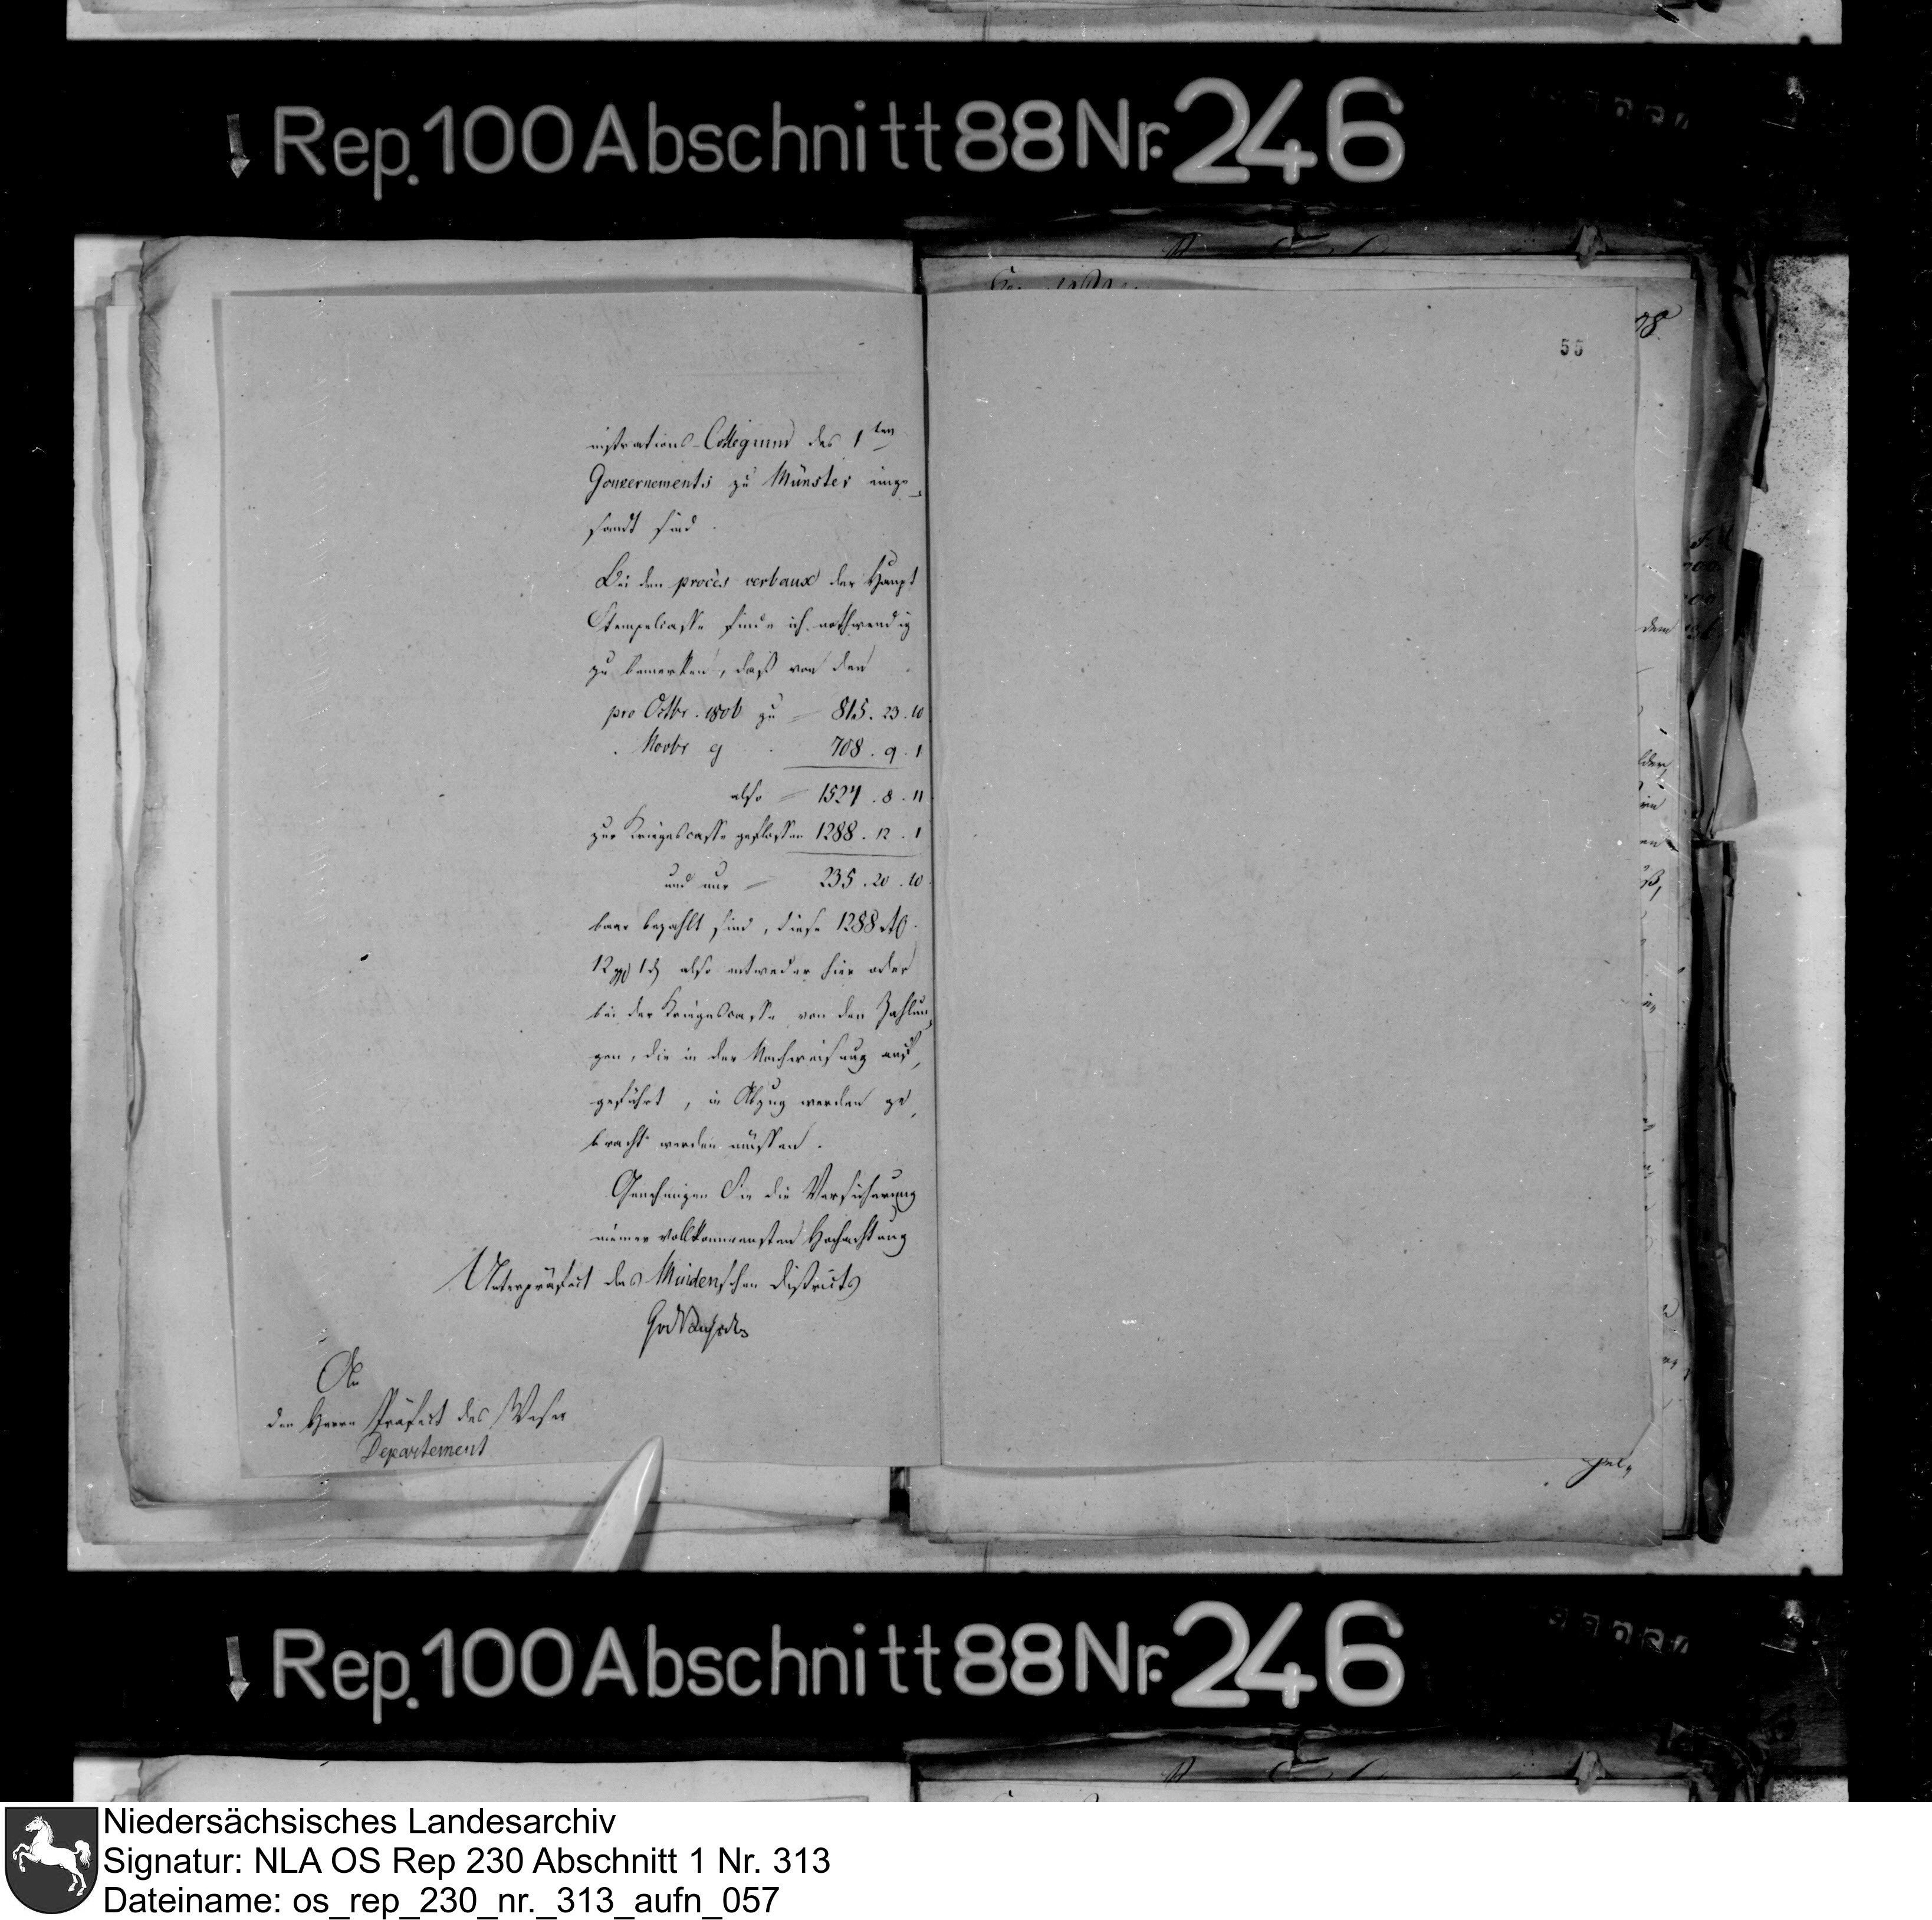 Rep. 100 Abschnitt 88 Nr. 246
55
nistrations-Collegium des 1ten
Gouvernements zu Münster einge-
sandt sind.
Bei den procès verbaux der Haupt
Stempelcasse finde ich nothwendig
zu bemerken, daß von den
pro Octbr. 1806 zu 815. 23. 10
Novbr 708. 9. 1
also 1524. 8. 11
zur Kriegescasse geflossen 1288. 12. 1
und nur 235. 20. 10
baar bezahlt sind, diese 1288 rtl.
12 ggl 1 d also entweder hier oder
bei der Kriegescasse von den Zahlun-
gen, die in der Nachweisung auf-
geführt, in Abzug werden ge-
bracht werden müssen.
Genehmigen Sie die Versicherung
meiner vollkommensten Hochachtung
Unterpräfect des Mindenschen Districts
An
den Herrn Präfect des Weser
Departement
Rep. 100 Abschnitt 88 Nr. 246
Niedersächsisches Landesarchiv
Signatur: NLA OS Rep 230 Abschnitt 1 Nr. 313
Dateiname: os_rep_230_nr._313_aufn_057